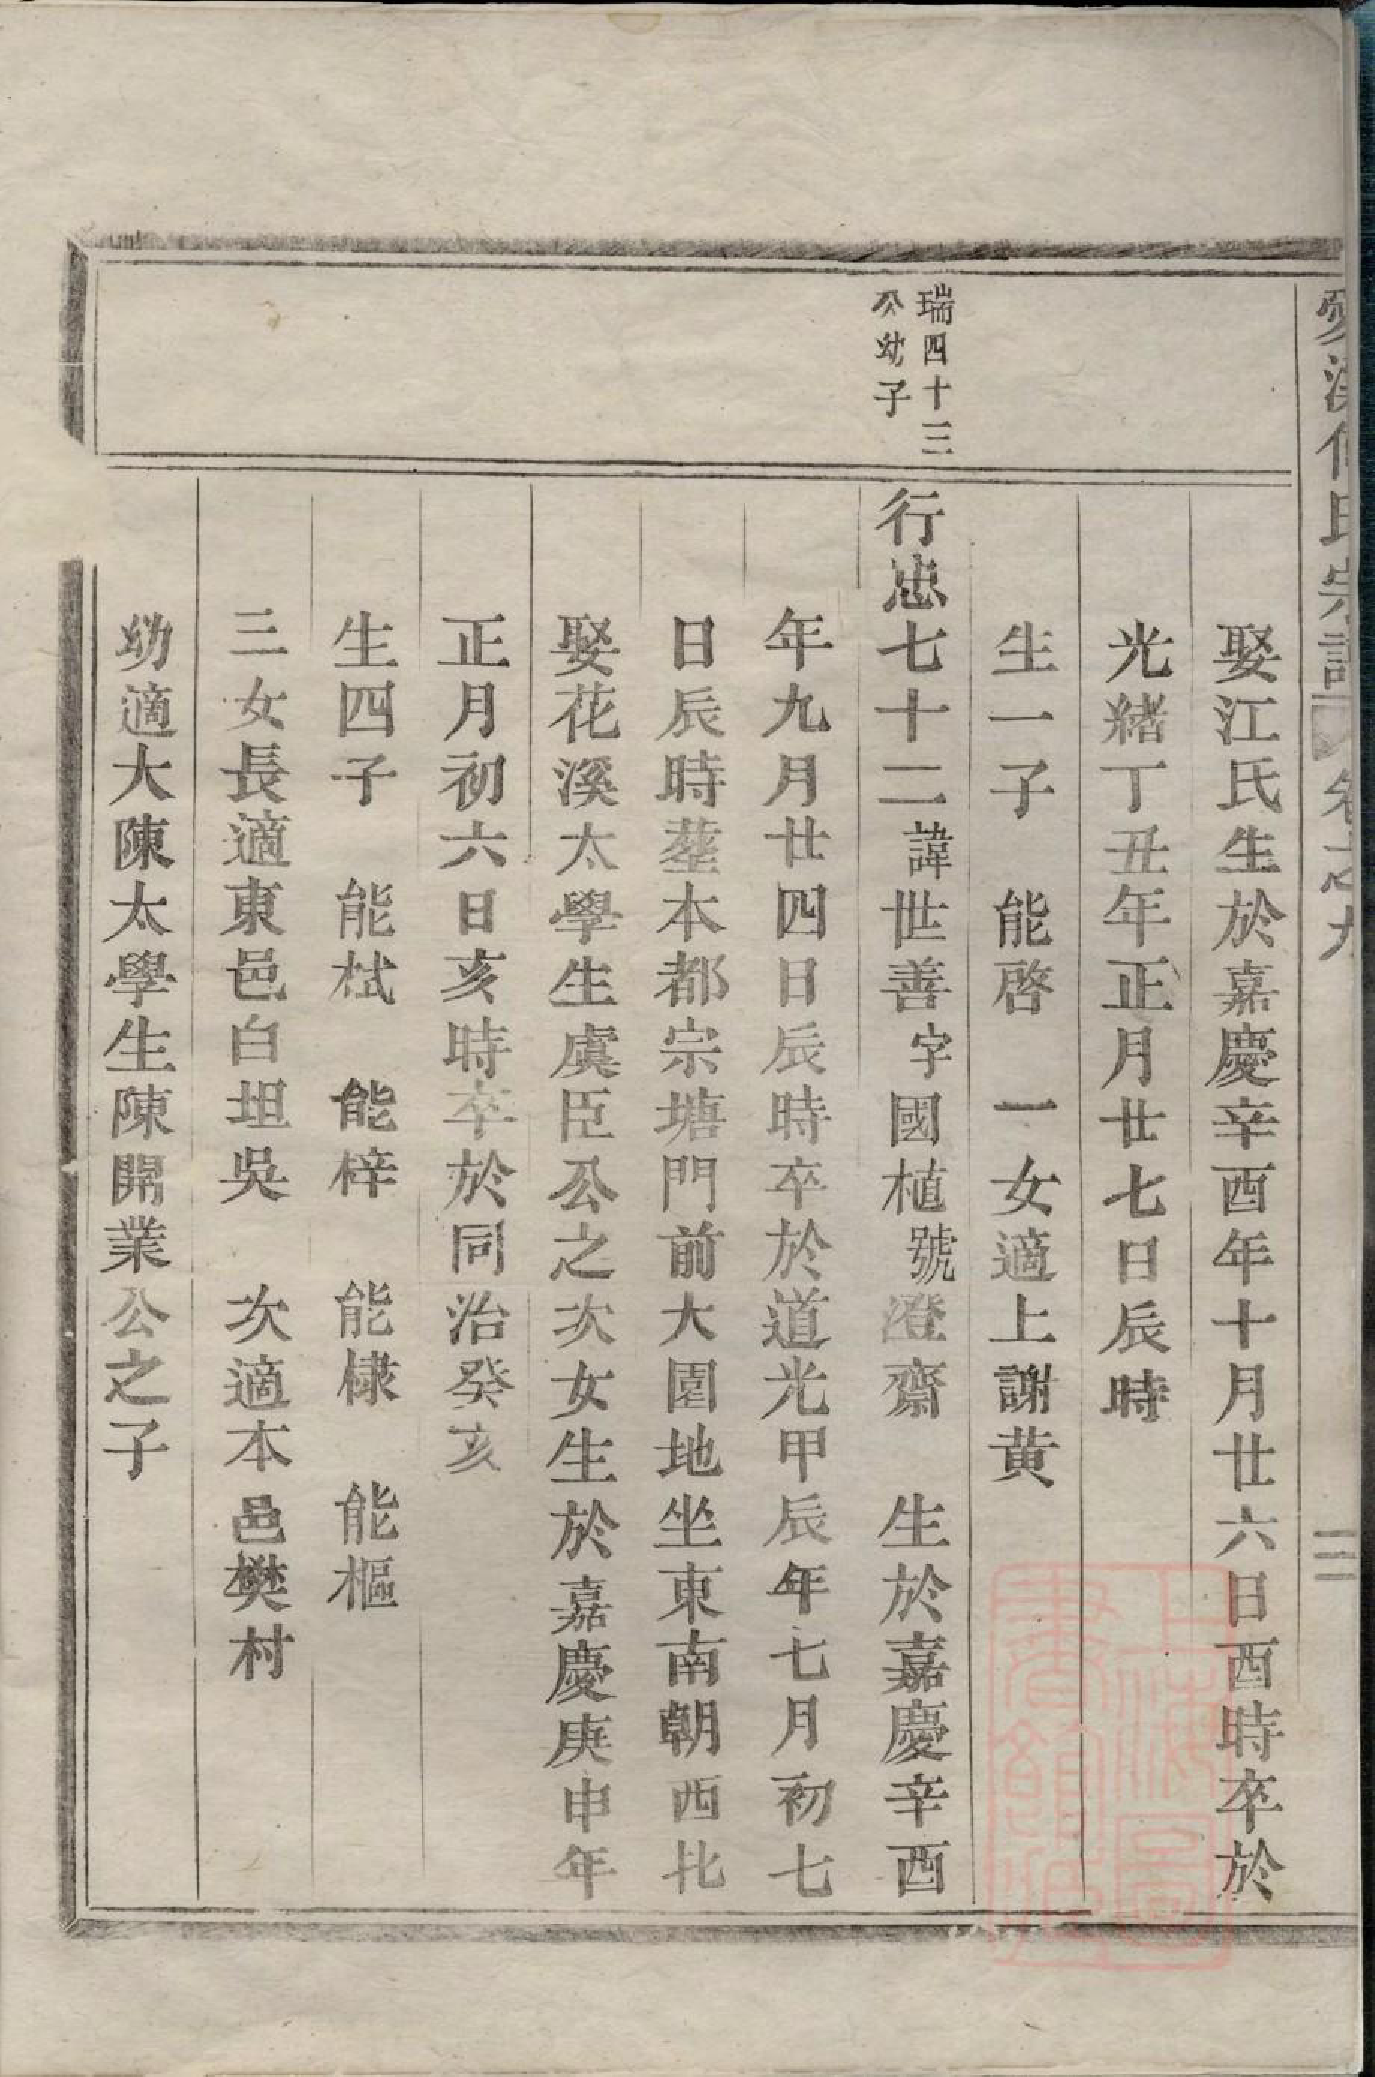 溪何氏宗譜 卷之九 二
娶江氏生於嘉慶辛酉年十月廿六日酉時卒於
光緒丁丑年正月廿七日辰時
生一子 能啓 一女適上謝黄
瑞四十三
公幼子
行忠七十二諱世善字國植號澄齋 生於嘉慶辛酉
年九月廿四日辰時卒於道光甲辰年七月初七
日辰時塟本都宗塘門前大園地坐東南朝西北
娶花溪太學生虞臣公之次女生於嘉慶庚申年
正月初六日亥時卒於同治癸亥
生四子 能栻 能梓 能棣 能樞
三女長適東邑白坦吳 次適本邑樊村
幼適大陳太學生陳開業公之子
上海圖書館藏